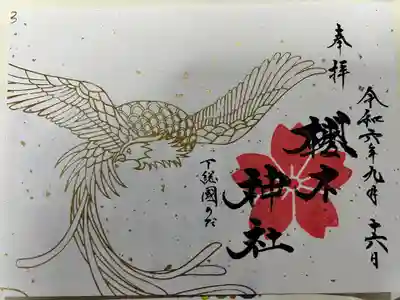 令和六年九月十六日
奉拝
櫻木
神社
下総國のだ
3